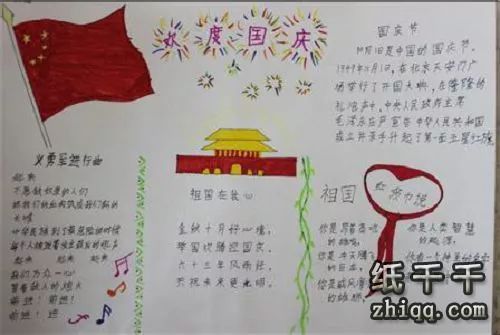 欢度国庆
国庆节
10月1日是中国的国庆节,
1949年10月1日,在北京天安门广
场举行了开国大典,在隆隆的
礼炮声中,中央人民政府主席
毛泽东庄严宣告中华人民共和国
成立并亲手升起了第一面五星红旗
义勇军进行曲
起来
不愿做奴隶的人们
把我们的血肉筑成我们新的
长城
中华民族到了最危险的时候
每个人被迫着发出最后的吼声
起来 起来 起来
我们万众一心
冒着敌人的炮火
前进! 前进!
前进! 进
祖国在我心
金秋十月好心境,
举国欢腾迎国庆。
六十三年风雨狂,
祖国
我为你
你是
的雄鸡,
你是冲天腾飞
的巨龙,
你是威风凛
的雄狮,
你是人类智慧
的起源,
纸千千
zhiqq.com